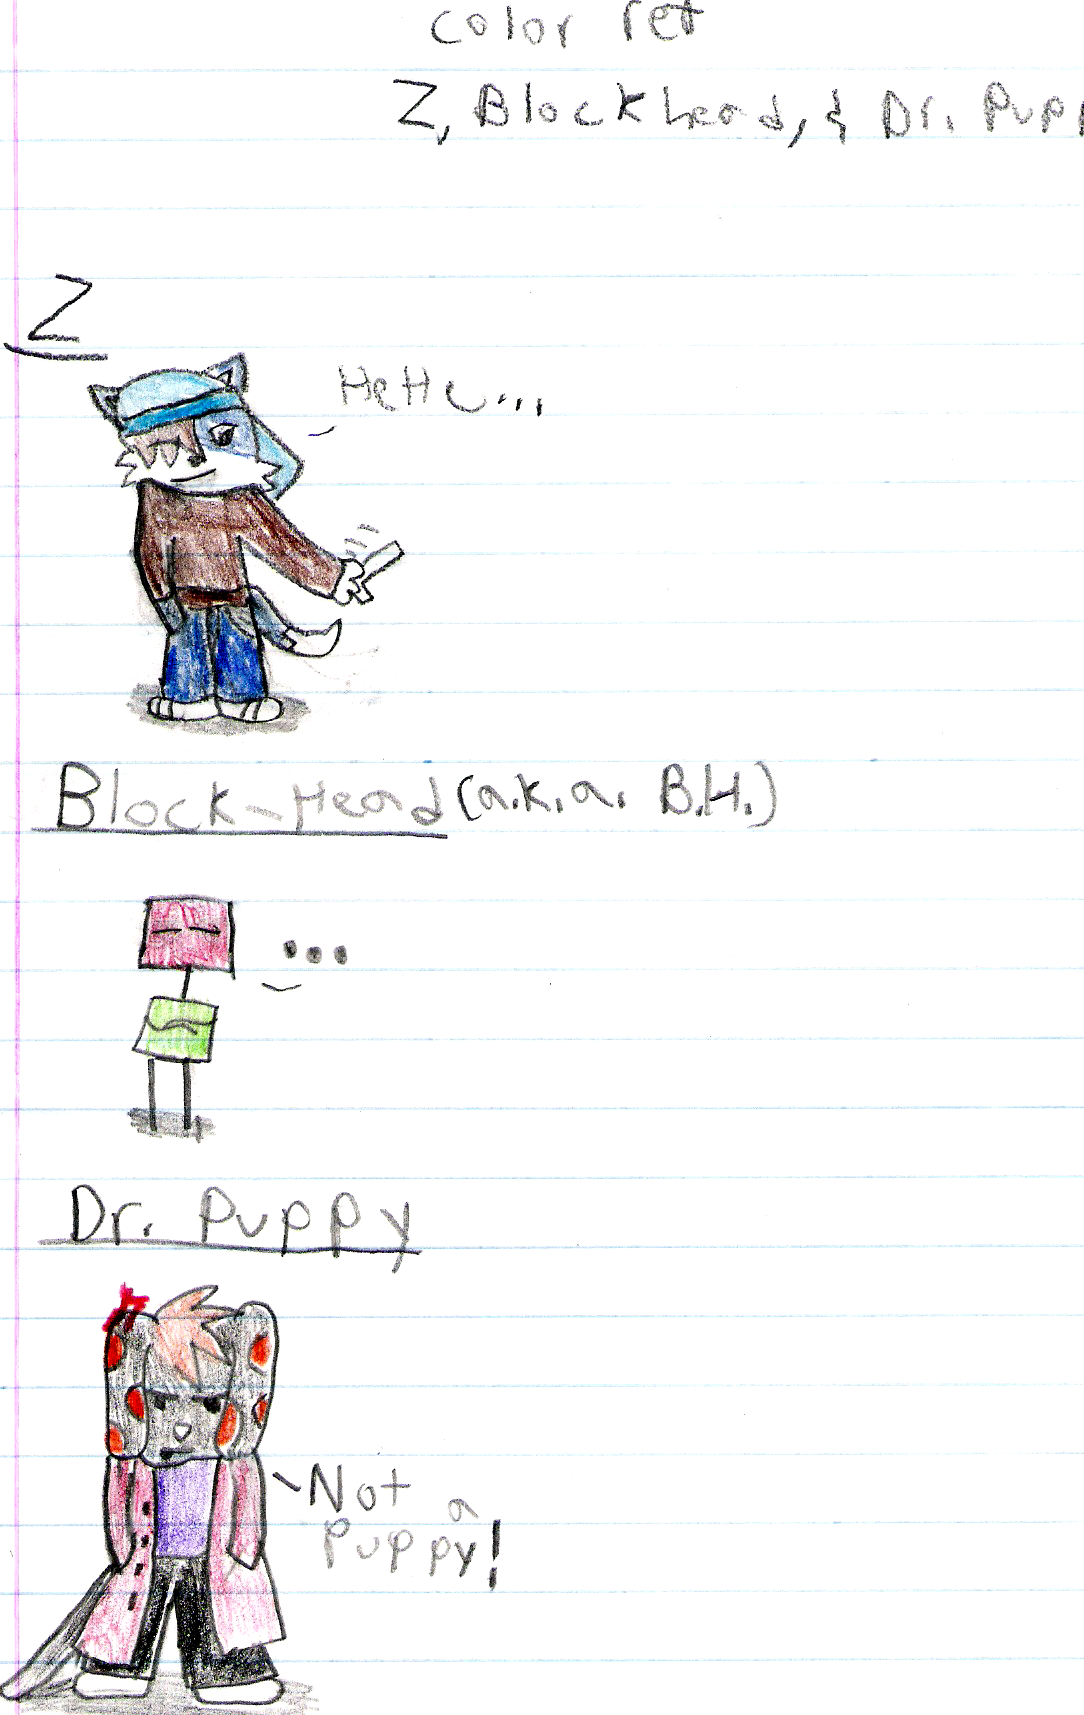 color ref
Z, Blockhead, & Dr. Pupp
Z
Block-Head (a.k.a. B.H.)
...
Dr. Puppy
Not a
Puppy!